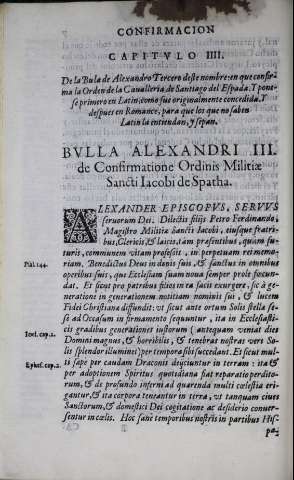 CONFIRMACION
CAPITVLO IIII.
De la Bula de Alexandro Tercero deste nombre: en que confir-
ma la Orden de la Caualleria de Santiago del Espada. Y pone-
se primero en Latin, como fue originalmente concedida, Y
despues en Romance, para que los que no saben
Latin la entiendan, y sepan.
BVLLA ALEXANDRI III.
de Confirmatione Ordinis Militiæ
Sancti Iacobi de Spatha.
ALEXANDER EPISCOPVS, SERVVS
seruorum Dei. Dilectis filijs Petro Ferdinando,
Magistro Militiæ Sancti Iacobi, eiusque fratri-
bus, Clericis, & laicis, tam præsentibus, quam fu-
turis, communem vitam professis, in perpetuum rei memo-
Psal. 144.
riam. Benedictus Deus in donis suis, & sanctus in omnibus
operibus suis, qui Ecclesiam suam noua semper prole fœcun-
dat. Et sicut pro patribus filios in ea facit exurgere, sic à ge-
neratione in generationem notitiam nominis sui, & lucem
Fidei Christianæ diffundit: vt sicut ante ortum Solis stellæ se-
se ad Occasum in firmamento sequuntur, ita in Ecclesiasti-
cis gradibus generationes iustorum (antequam veniat dies
Ioel. cap. 2.
Domini magnus, & horribilis, & tenebras nostras vere So-
lis splendor illuminet) per tempora sibi succedant. Et sicut mul-
ti sæpe per caudam Draconis deijciuntur in terram: ita &
Ephes. cap. 2.
per adoptionem Spiritus quotidiana fiat reparatio perdito-
rum, & de profundo inferni ad quærenda multi cœlestia eri-
gantur, & ita corpora teneantur in terra, vt tanquam ciues
Sanctorum, & domestici Dei cogitatione ac desiderio conuer-
sentur in cœlis. Hoc sanè temporibus nostris in partibus His-
pa-